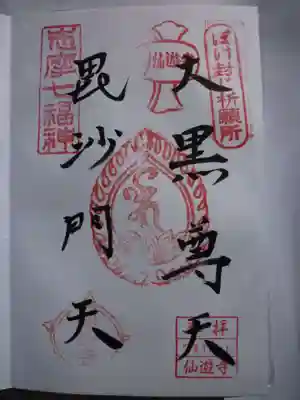 ぼけ封じ祈願所
仙遊寺
大黒尊天
志摩七福神
毘沙門天
仙遊寺